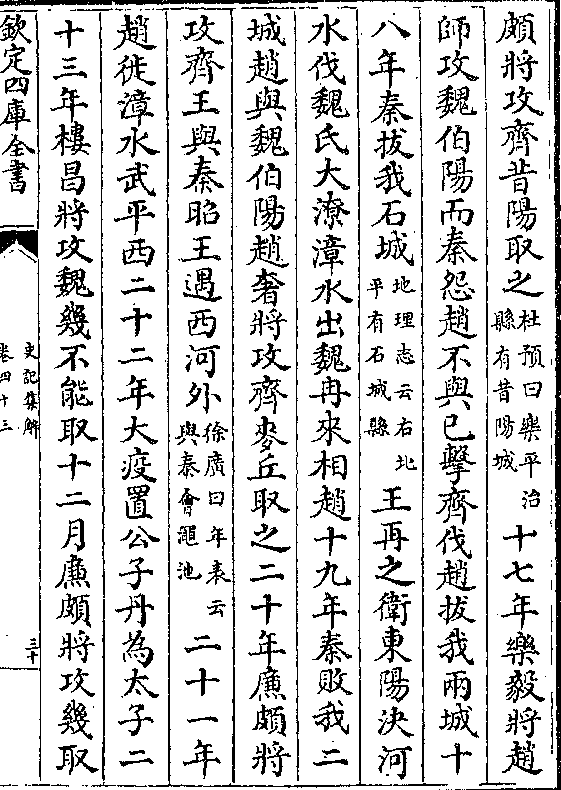 頗將攻齊昔陽取之杜預曰樂平治縣有昔陽城十七年樂毅將趙
師攻魏伯陽而秦怨趙不與已擊齊伐趙拔我兩城十
八年秦拔我石城地理志云右北平有石城縣王再之衛東陽決河
水伐魏氏大潦漳水出魏冉來相趙十九年秦敗我二
城趙與魏伯陽趙奢將攻齊麥丘取之二十年廉頗將
攻齊王與秦昭王遇西河外徐廣曰年表云與秦會澠池二十一年
趙徙漳水武平西二十二年大疫置公子丹為太子二
十三年樓昌將攻魏幾不能取十二月廉頗將攻幾取
欽定四庫全書
史記集解
卷四十三
三十